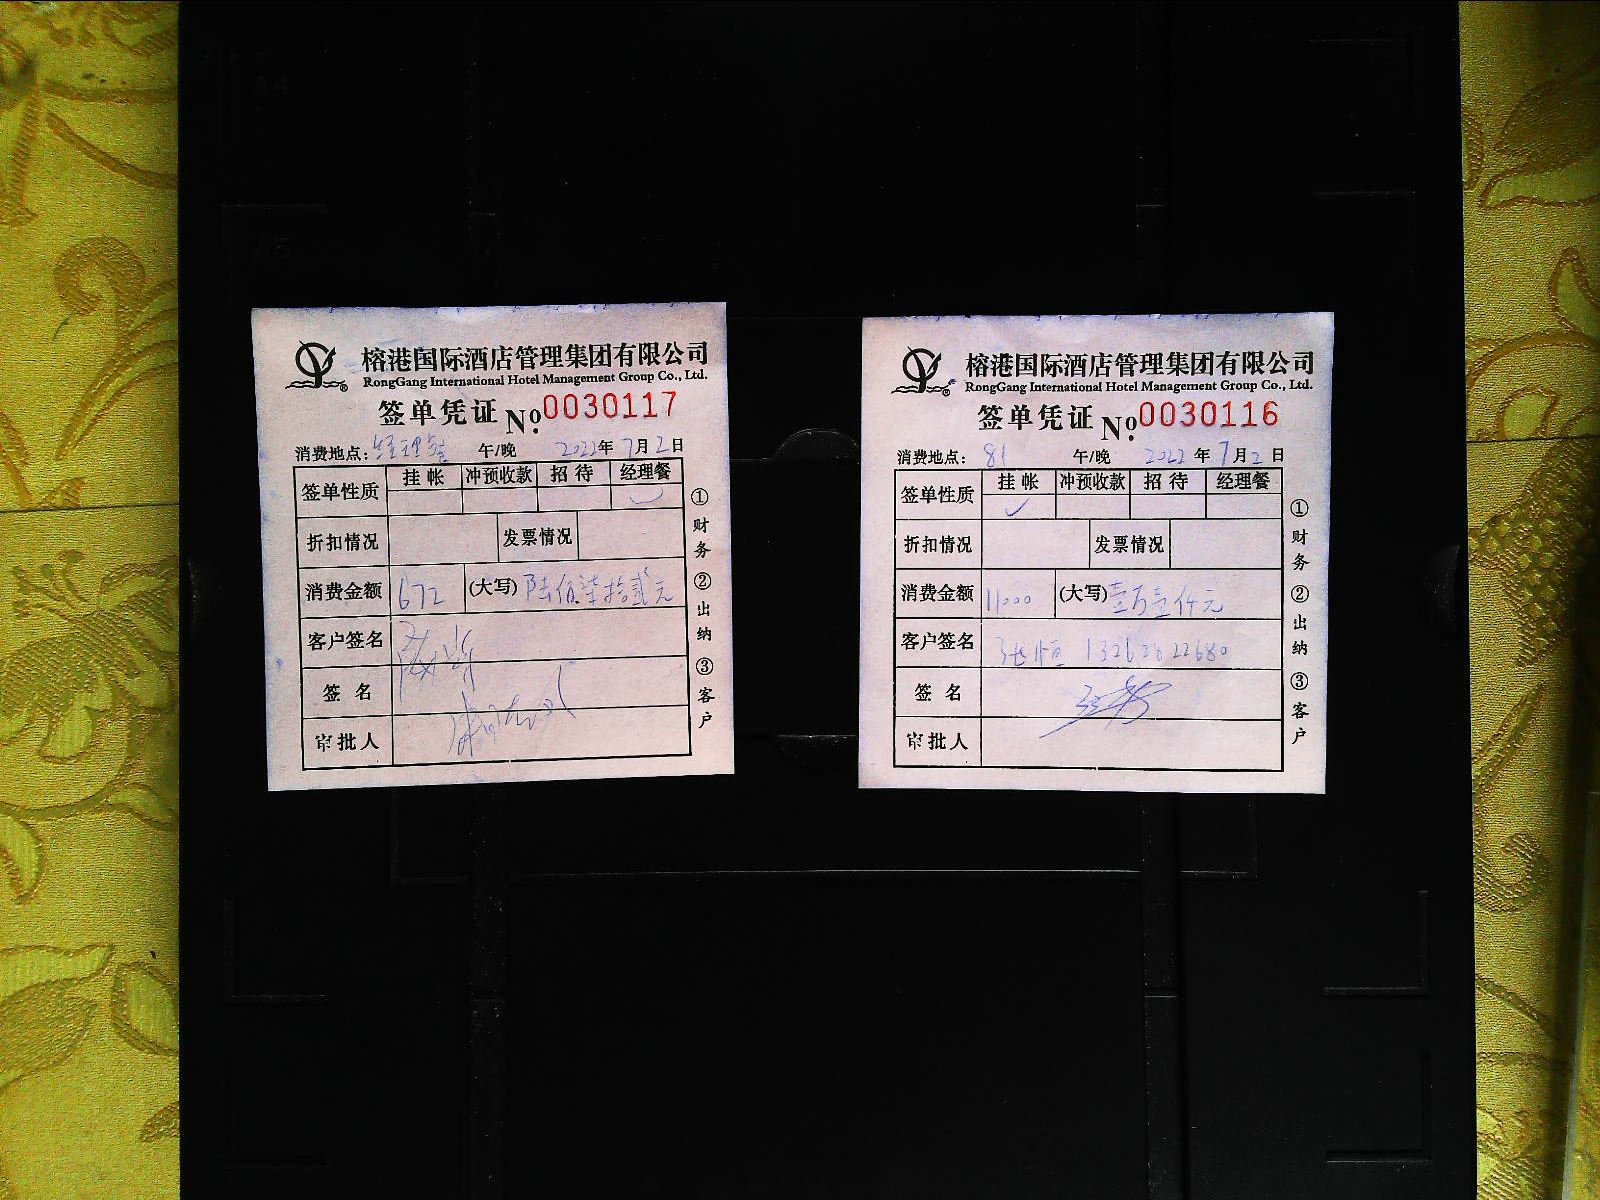 榕港国际酒店管理集团有限公司
RongGang International Hotel Management Group Co., Ltd.
签单凭证 No.0030117
消费地点：经理餐 午/晚 2022年7月2日
签单性质 挂帐 冲预收款 招待 经理餐
✓
折扣情况 发票情况
消费金额 672 (大写) 陆佰柒拾贰元
客户签名
签名
审批人
①财务 ②出纳 ③客户
榕港国际酒店管理集团有限公司
RongGang International Hotel Management Group Co., Ltd.
签单凭证 No.0030116
消费地点： 81 午/晚 2022年7月2日
签单性质 挂帐 冲预收款 招待 经理餐
✓
折扣情况 发票情况
消费金额 11000 (大写) 壹万壹仟元
客户签名 张恒 13262822680
签名
审批人
①财务 ②出纳 ③客户